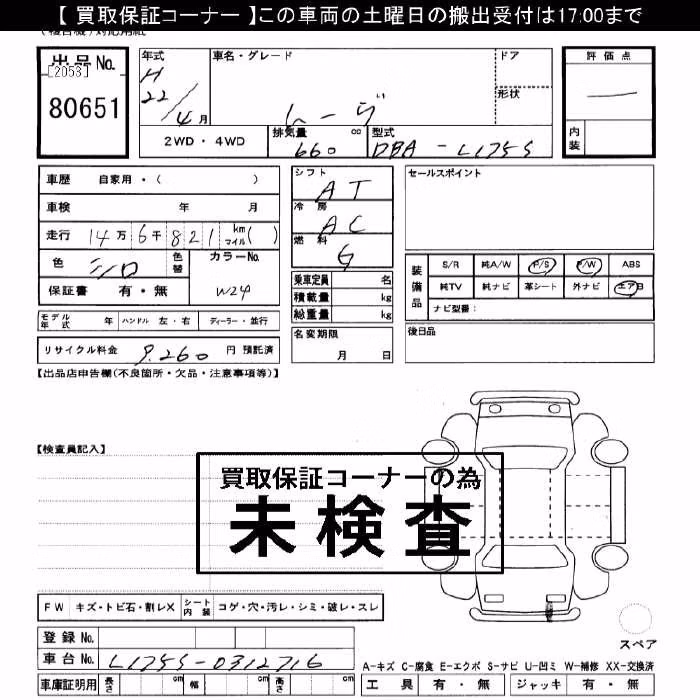 【 買取保証コーナー 】この車両の土曜日の搬出受付は17:00まで
出品No.
[2053]
80651
年式
H
22/4月
車名・グレード
ムーヴ
ドア
形状
2WD・4WD
排気量
660
cc
型式
DBA-L175S
評価点
内装
車歴 自家用・( )
車検 年 月
走行 14万 6千 8 2 1 km マイル( )
色 シロ
色替
カラーNo.
W24
保証書 有・無
シフト
AT
冷房
AC
燃料
G
乗車定員 名
積載量 kg
総重量 kg
セールスポイント
装備品
S/R 純A/W P/S P/W ABS
純TV 純ナビ 革シート 外ナビ エアB
ナビ型番:
モデル年式 年 ハンドル 左・右 ディーラー・並行
名変期限
月 日
後日品
リサイクル料金 9,260 円 預託済
【出品店申告欄(不良箇所・欠品・注意事項等)】
【検査員記入】
買取保証コーナーの為
未検査
FW キズ・トビ石・割レX シート内装 コゲ・穴・汚レ・シミ・破レ・スレ
スペア
登録No.
車台No. L175S-0312716
A-キズ C-腐食 E-エクボ S-サビ U-凹ミ W-補修 XX-交換済
車庫証明用 長さ cm 幅 cm 高さ cm
工具 有・無 ジャッキ 有・無